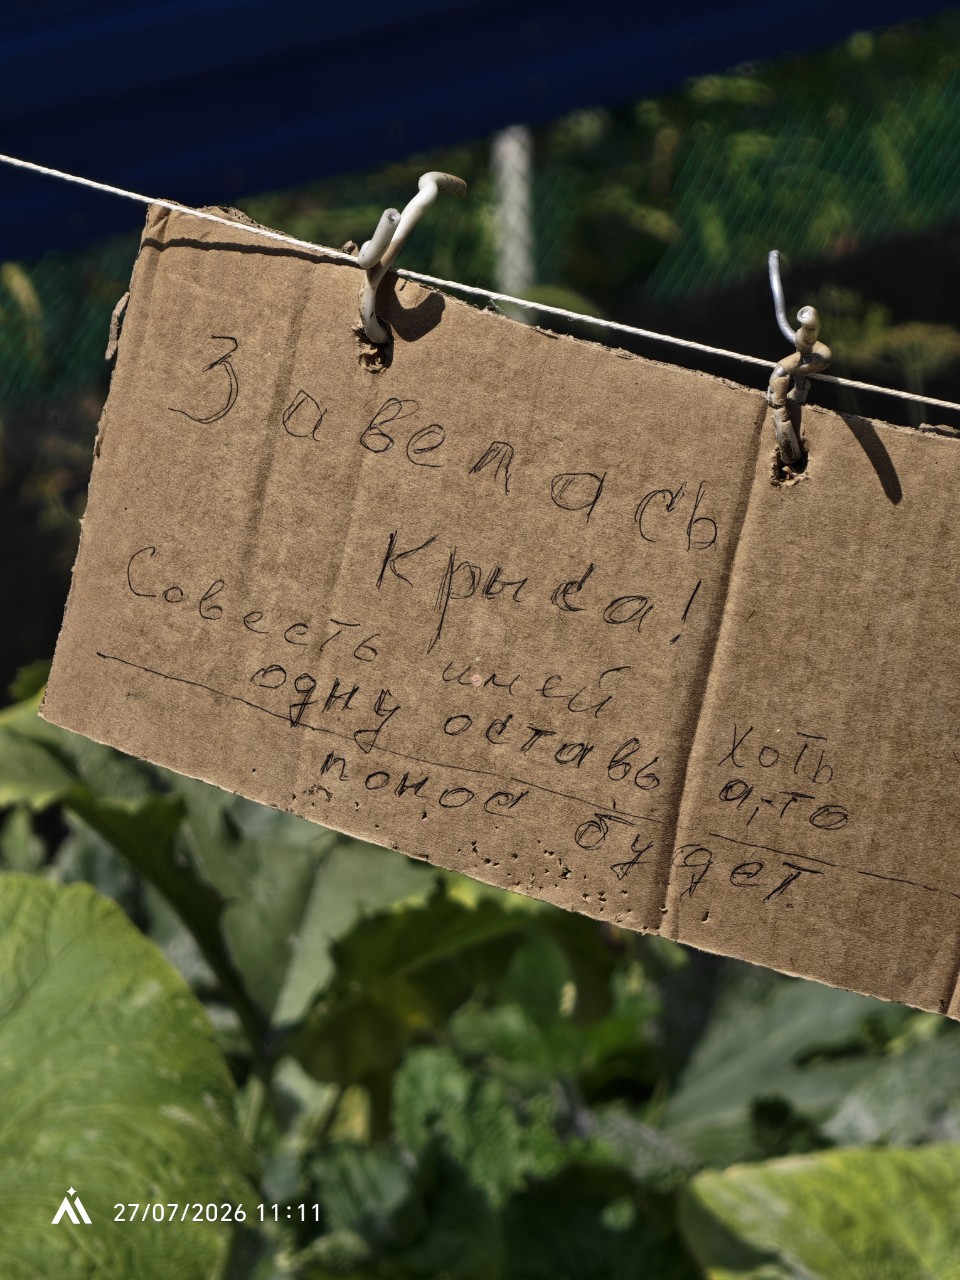 Завелась
Крыса!
Совесть имей хоть
одну оставь а,-то
понос будет.
27/07/2026 11:11